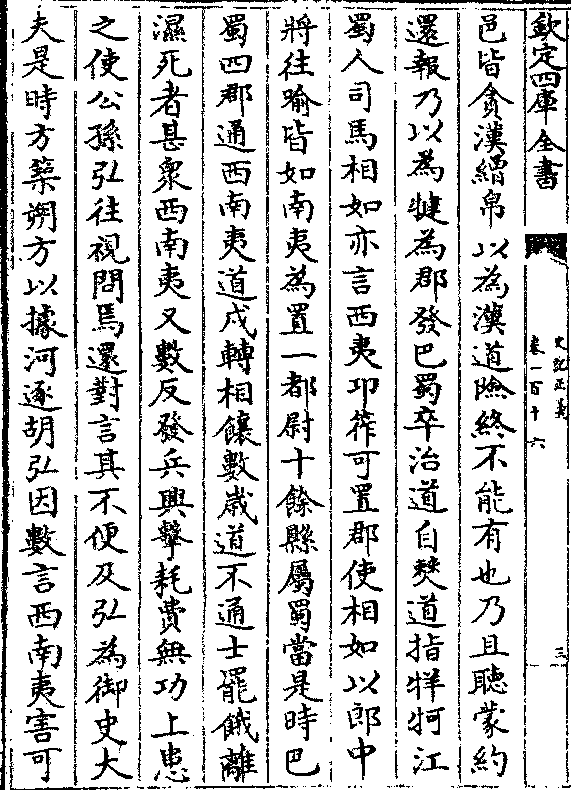 欽定四庫全書
史記正義
卷一百十六
三
邑皆貪漢繒帛以為漢道險終不能有也乃且聽蒙約
還報乃以為犍為郡發巴蜀卒治道自僰道指牂牁江
蜀人司馬相如亦言西夷卭筰可置郡使相如以郎中
將往喻皆如南夷為置一都尉十餘縣屬蜀當是時巴
蜀四郡通西南夷道戍轉相饟數嵗道不通士罷餓離
濕死者甚衆西南夷又數反發兵興擊耗費無功上患
之使公孫弘往視問焉還對言其不便及弘為御史大
夫是時方築朔方以據河逐胡弘因數言西南夷害可